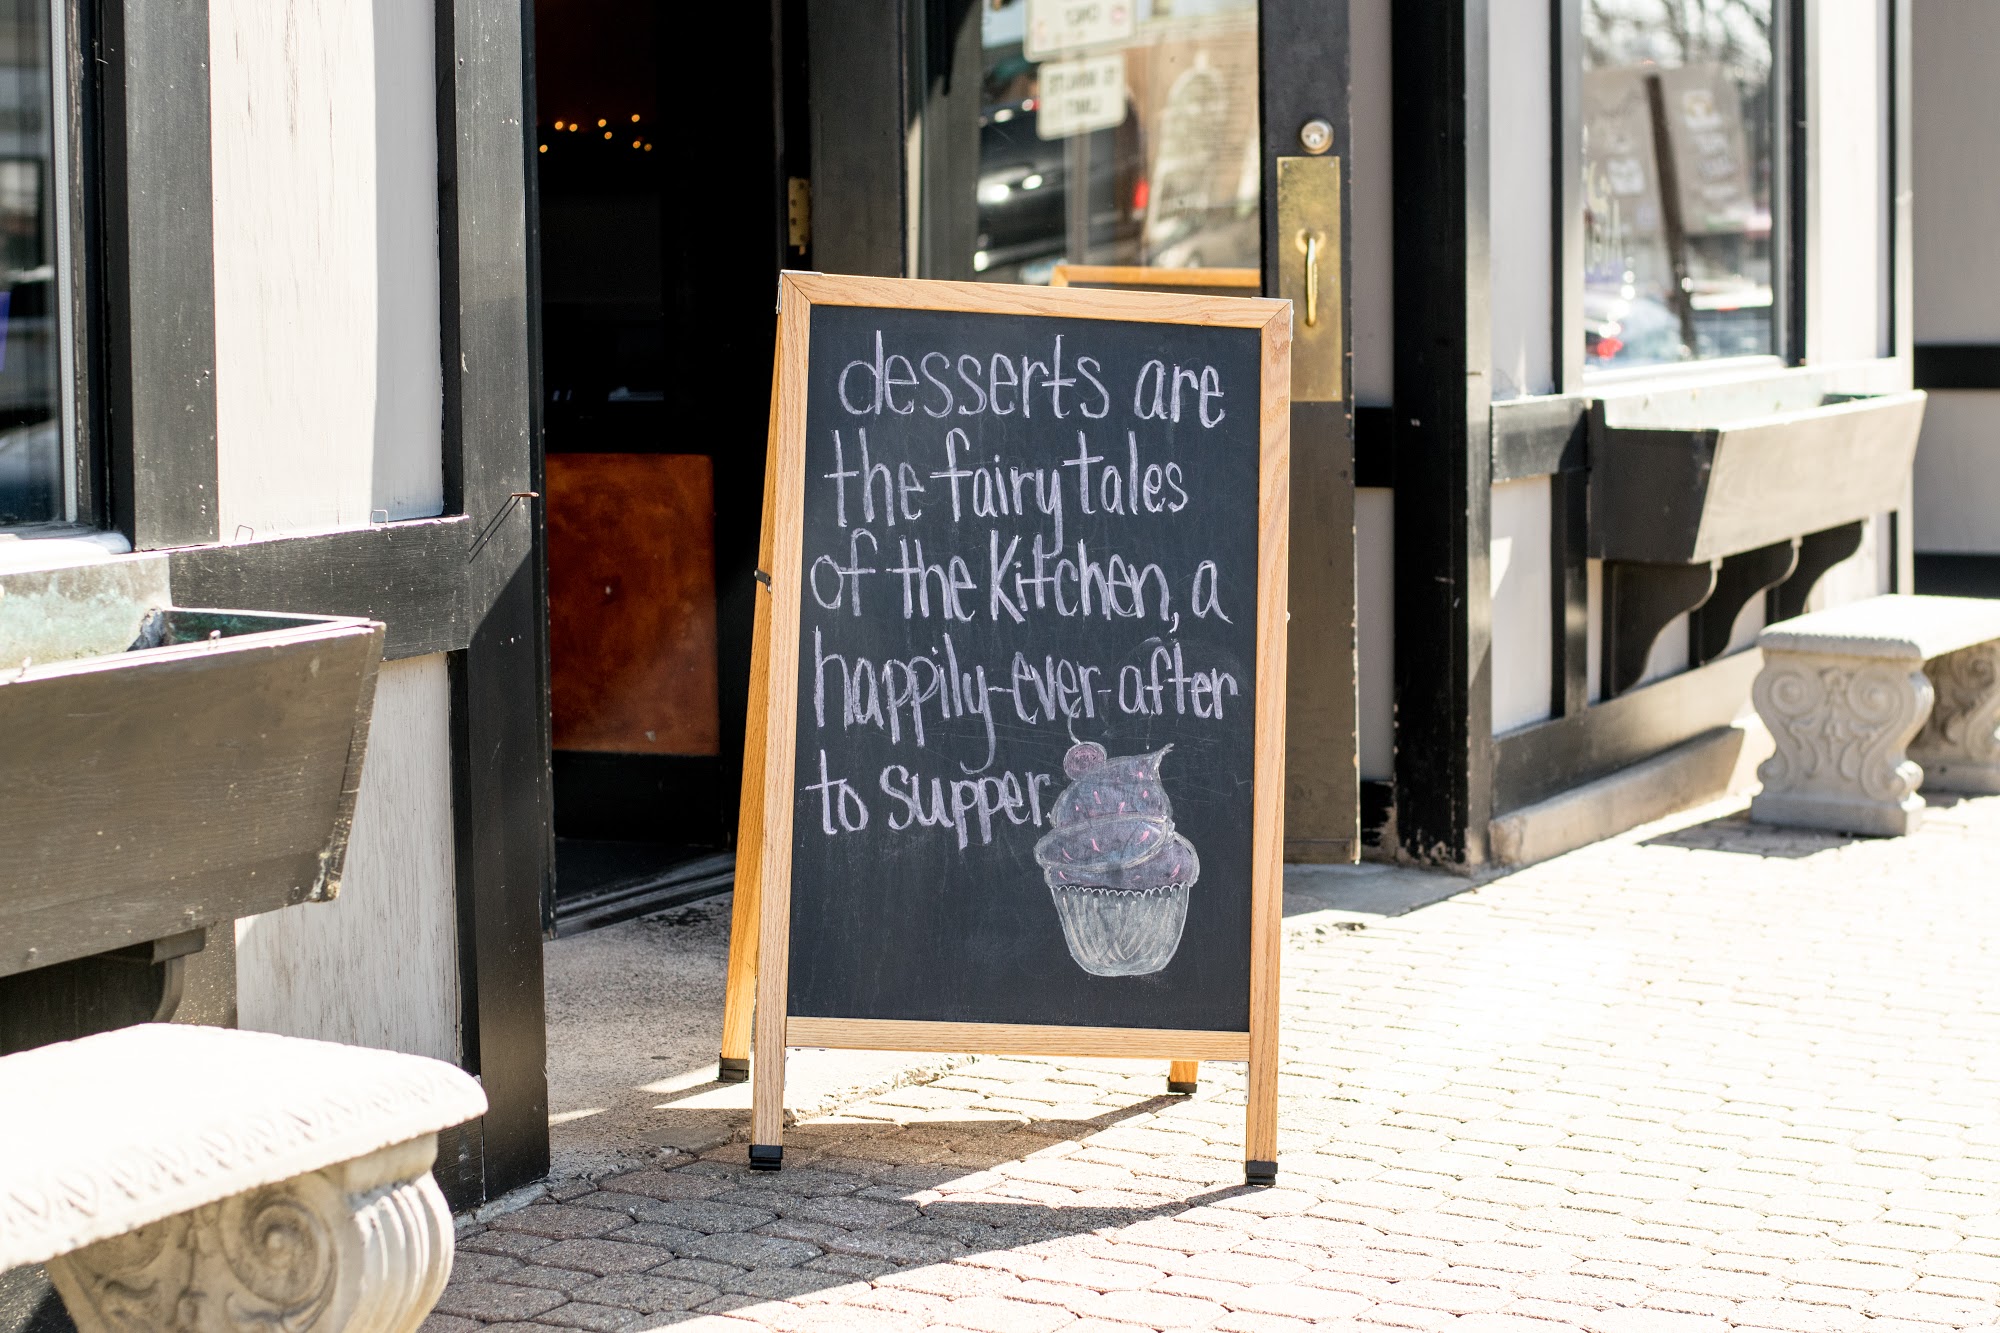 desserts are
the fairy tales
of the Kitchen, a
happily-ever-after
to supper.